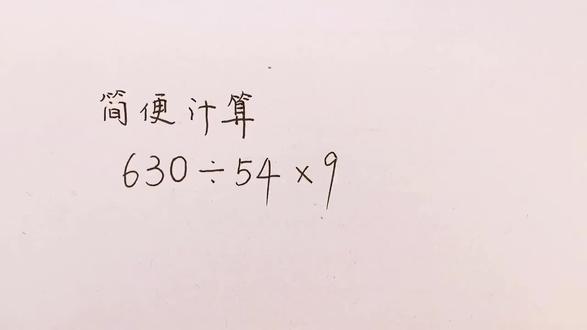 简便计算
630÷54×9